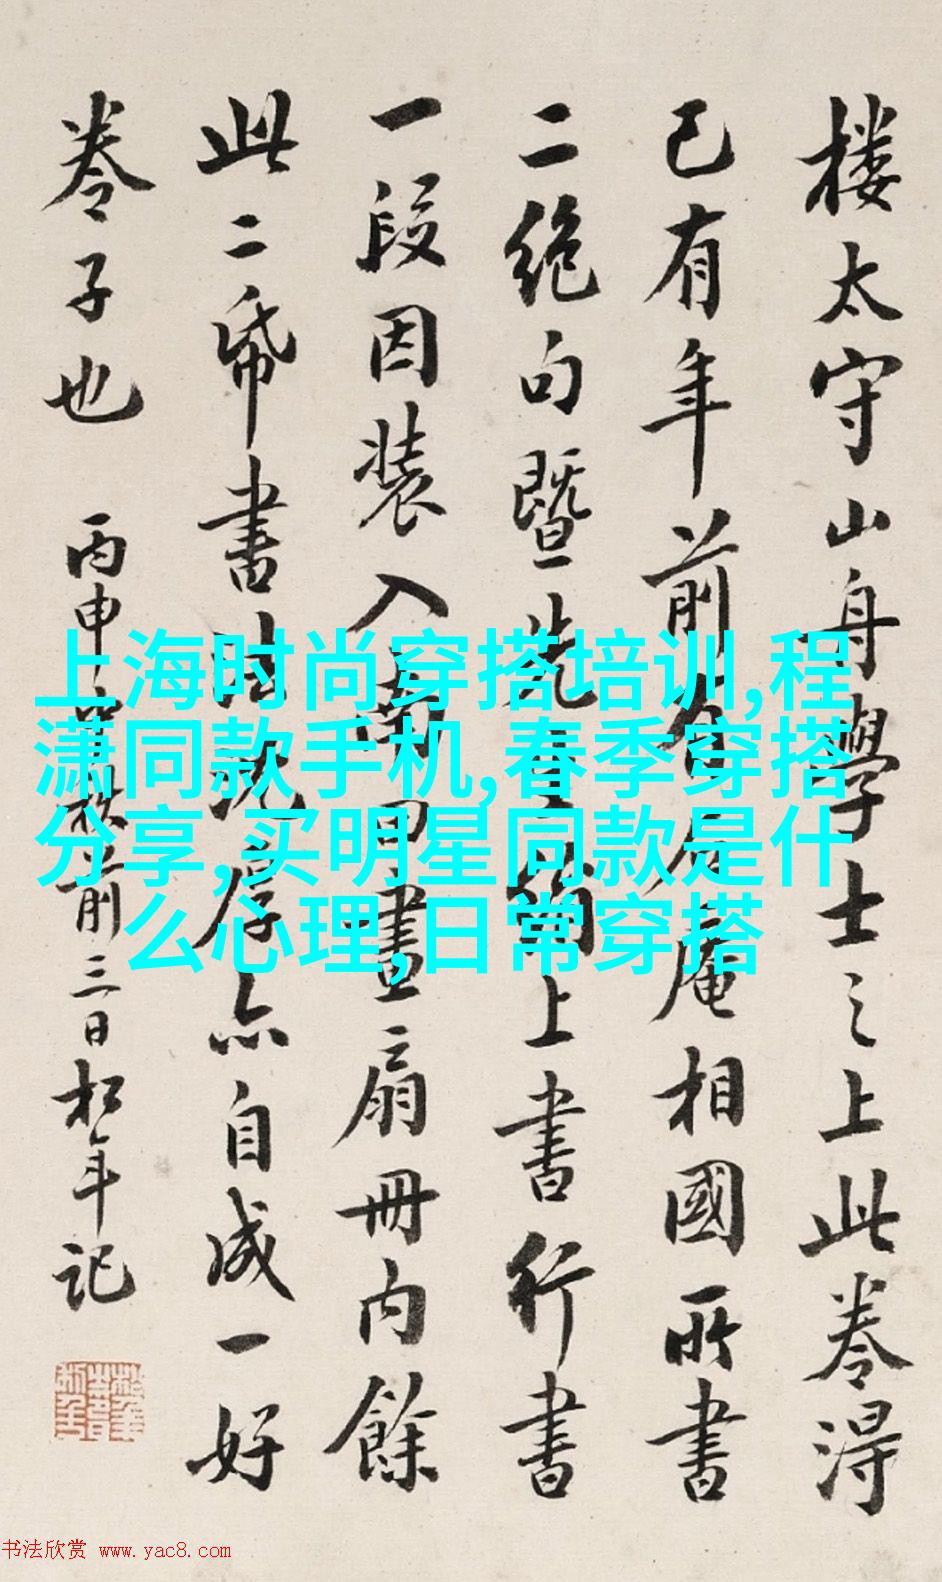 楼太守山舟學士之上此卷淂
已有年前
相國所書
二絶句暨先
上書行書
一段因装入
畫扇冊内餘
此二帋書
亦自成一好
卷子也
丙申
前三日松年記
上海时尚穿搭培训,程
潇同款手机,春季穿搭
分享,买明星同款是什
么心理,日常穿搭
书法欣赏 www.yac8.com